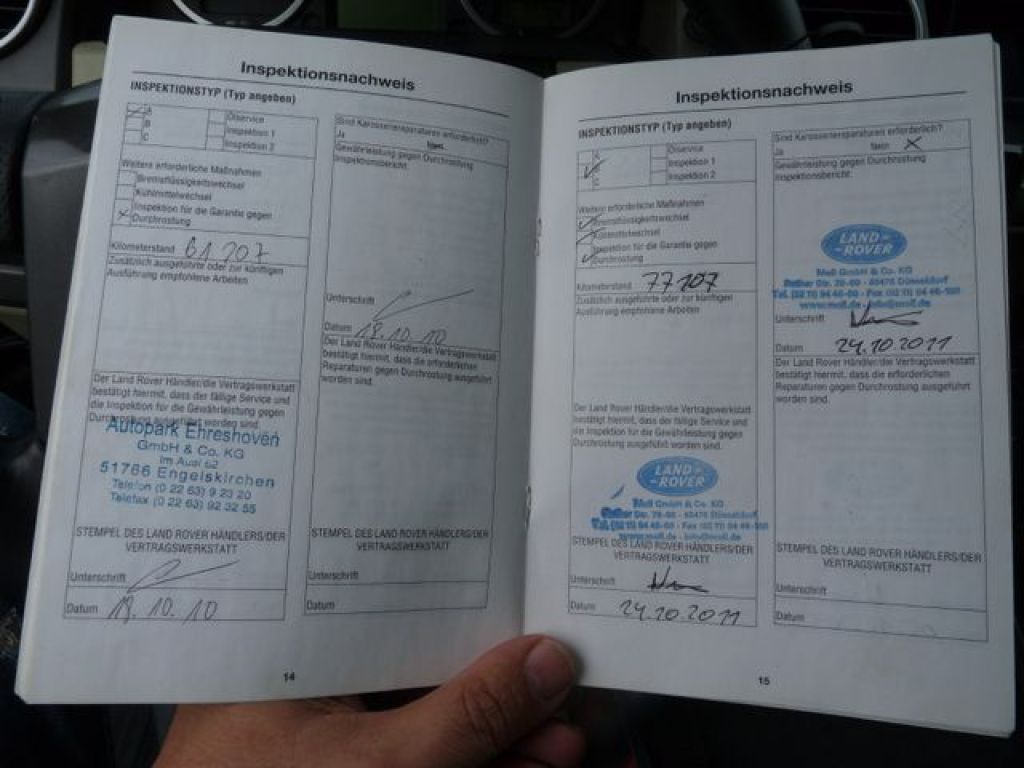 Inspektionsnachweis
INSPEKTIONSTYP (Typ angeben)
A
B
C
Ölservice
Inspektion 1
Inspektion 2
Weitere erforderliche Maßnahmen
Bremsflüssigkeitswechsel
Kühlmittelwechsel
Inspektion für die Garantie gegen
Durchrostung
Kilometerstand 61.207
Zusätzlich ausgeführte oder zur künftigen
Ausführung empfohlene Arbeiten
Der Land Rover Händler/die Vertragswerkstatt
bestätigt hiermit, dass der fällige Service und
die Inspektion für die Gewährleistung gegen
Durchrostung ausgeführt worden sind.
Autopark Ehreshoven
GmbH & Co. KG
Im Auel 62
51766 Engelskirchen
Telefon (0 22 63) 9 23 20
Telefax (0 22 63) 92 32 55
STEMPEL DES LAND ROVER HÄNDLERS/DER
VERTRAGSWERKSTATT
Unterschrift
Datum 18.10.10
Sind Karosseriereparaturen erforderlich?
Ja Nein
Gewährleistung gegen Durchrostung
Inspektionsbericht:
Unterschrift
Datum 18.10.10
Der Land Rover Händler/die Vertragswerkstatt
bestätigt hiermit, dass die erforderlichen
Reparaturen gegen Durchrostung ausgeführt
worden sind.
STEMPEL DES LAND ROVER HÄNDLERS/DER
VERTRAGSWERKSTATT
Unterschrift
Datum
14
Inspektionsnachweis
INSPEKTIONSTYP (Typ angeben)
A
C
Ölservice
Inspektion 1
Inspektion 2
Weitere erforderliche Maßnahmen
Bremsflüssigkeitswechsel
Kühlmittelwechsel
Inspektion für die Garantie gegen
Durchrostung
Kilometerstand 77107
Zusätzlich ausgeführte oder zur künftigen
Ausführung empfohlene Arbeiten
Der Land Rover Händler/die Vertragswerkstatt
bestätigt hiermit, dass der fällige Service und
die Inspektion für die Gewährleistung gegen
Durchrostung ausgeführt worden sind.
LAND-
-ROVER
Moll GmbH & Co. KG
STEMPEL DES LAND ROVER HÄNDLERS/DER
VERTRAGSWERKSTATT
Unterschrift
Datum 24.10.2011
Sind Karosseriereparaturen erforderlich?
Ja Nein X
Gewährleistung gegen Durchrostung
Inspektionsbericht:
LAND-
-ROVER
Moll GmbH & Co. KG
Unterschrift
Datum 24.10.2011
Der Land Rover Händler/die Vertragswerkstatt
bestätigt hiermit, dass die erforderlichen
Reparaturen gegen Durchrostung ausgeführt
worden sind.
STEMPEL DES LAND ROVER HÄNDLERS/DER
VERTRAGSWERKSTATT
Unterschrift
Datum
15